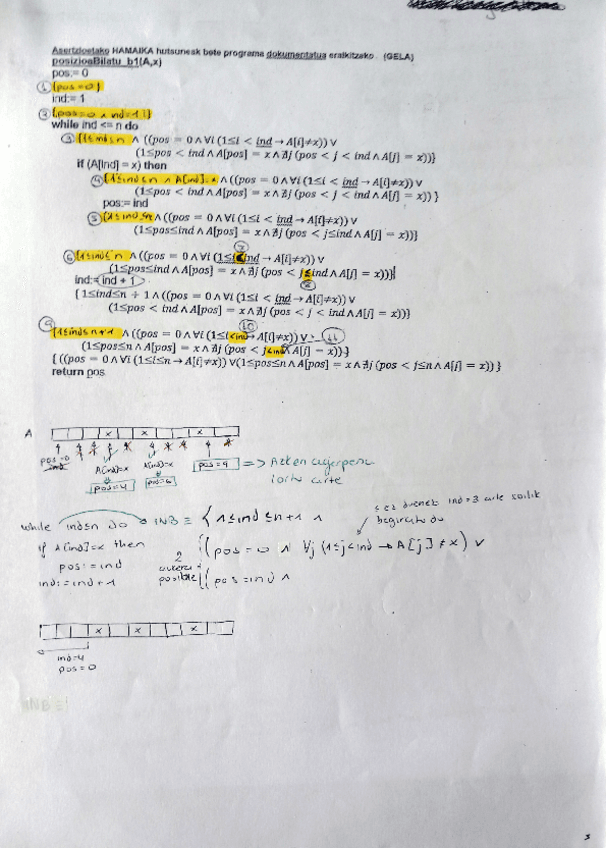 Asertzioetako HAMAIKA hutsunesk bete programa dokumentatua eraikitzeko. (GELA)
posizioaBilatu_b1(A,x)
pos:= 0
① {pos=0}
ind:= 1
② {pos=0 ∧ ind=1}
while ind <= n do
③ {1≤ind≤n ∧ ((pos = 0 ∧ ∀i (1≤i < ind → A[i]≠x)) ∨
(1≤pos < ind ∧ A[pos] = x ∧ ∄j (pos < j < ind ∧ A[j] = x))}
if (A[ind] = x) then
④ {1≤ind≤n ∧ A[ind]=x ∧ ((pos = 0 ∧ ∀i (1≤i < ind → A[i]≠x)) ∨
(1≤pos < ind ∧ A[pos] = x ∧ ∄j (pos < j < ind ∧ A[j] = x)) }
pos:= ind
⑤ {1≤ind≤n ∧ ((pos = 0 ∧ ∀i (1≤i < ind → A[i]≠x)) ∨
(1≤pos≤ind ∧ A[pos] = x ∧ ∄j (pos < j≤ind ∧ A[j] = x))}
⑦
⑥ {1≤ind≤n ∧ ((pos = 0 ∧ ∀i (1≤i≤ind → A[i]≠x)) ∨
(1≤pos≤ind ∧ A[pos] = x ∧ ∄j (pos < j≤ind ∧ A[j] = x))}
ind:= ind + 1
⑧
{ 1≤ind≤n + 1 ∧ ((pos = 0 ∧ ∀i (1≤i < ind → A[i]≠x)) ∨
(1≤pos < ind ∧ A[pos] = x ∧ ∄j (pos < j < ind ∧ A[j] = x))}
⑨ ⑩ ⑪
{1≤ind≤n+1 ∧ ((pos = 0 ∧ ∀i (1≤i<ind → A[i]≠x)) ∨
(1≤pos≤n ∧ A[pos] = x ∧ ∄j (pos < j<ind ∧ A[j] = x)) }
{ ((pos = 0 ∧ ∀i (1≤i≤n → A[i]≠x)) ∨(1≤pos≤n ∧ A[pos] = x ∧ ∄j (pos < j≤n ∧ A[j] = x)) }
return pos
A x x x
pos=0
ind
A[ind]=x A[ind]=x
pos=4 pos=6 pos=9 => Azken agerpena
lortu arte
ez duenez ind=3 arte soilik
begiratu du
while ind≤n do → INB ≡ { 1≤ind≤n+1 ∧
if A[ind]=x then ((pos=0 ∧ ∀j (1≤j<ind → A[j]≠x) ∨
pos:=ind 2
aukera posible ((pos=ind ∧
ind:=ind+1
x x x
ind=4
pos=0
INB ≡
5